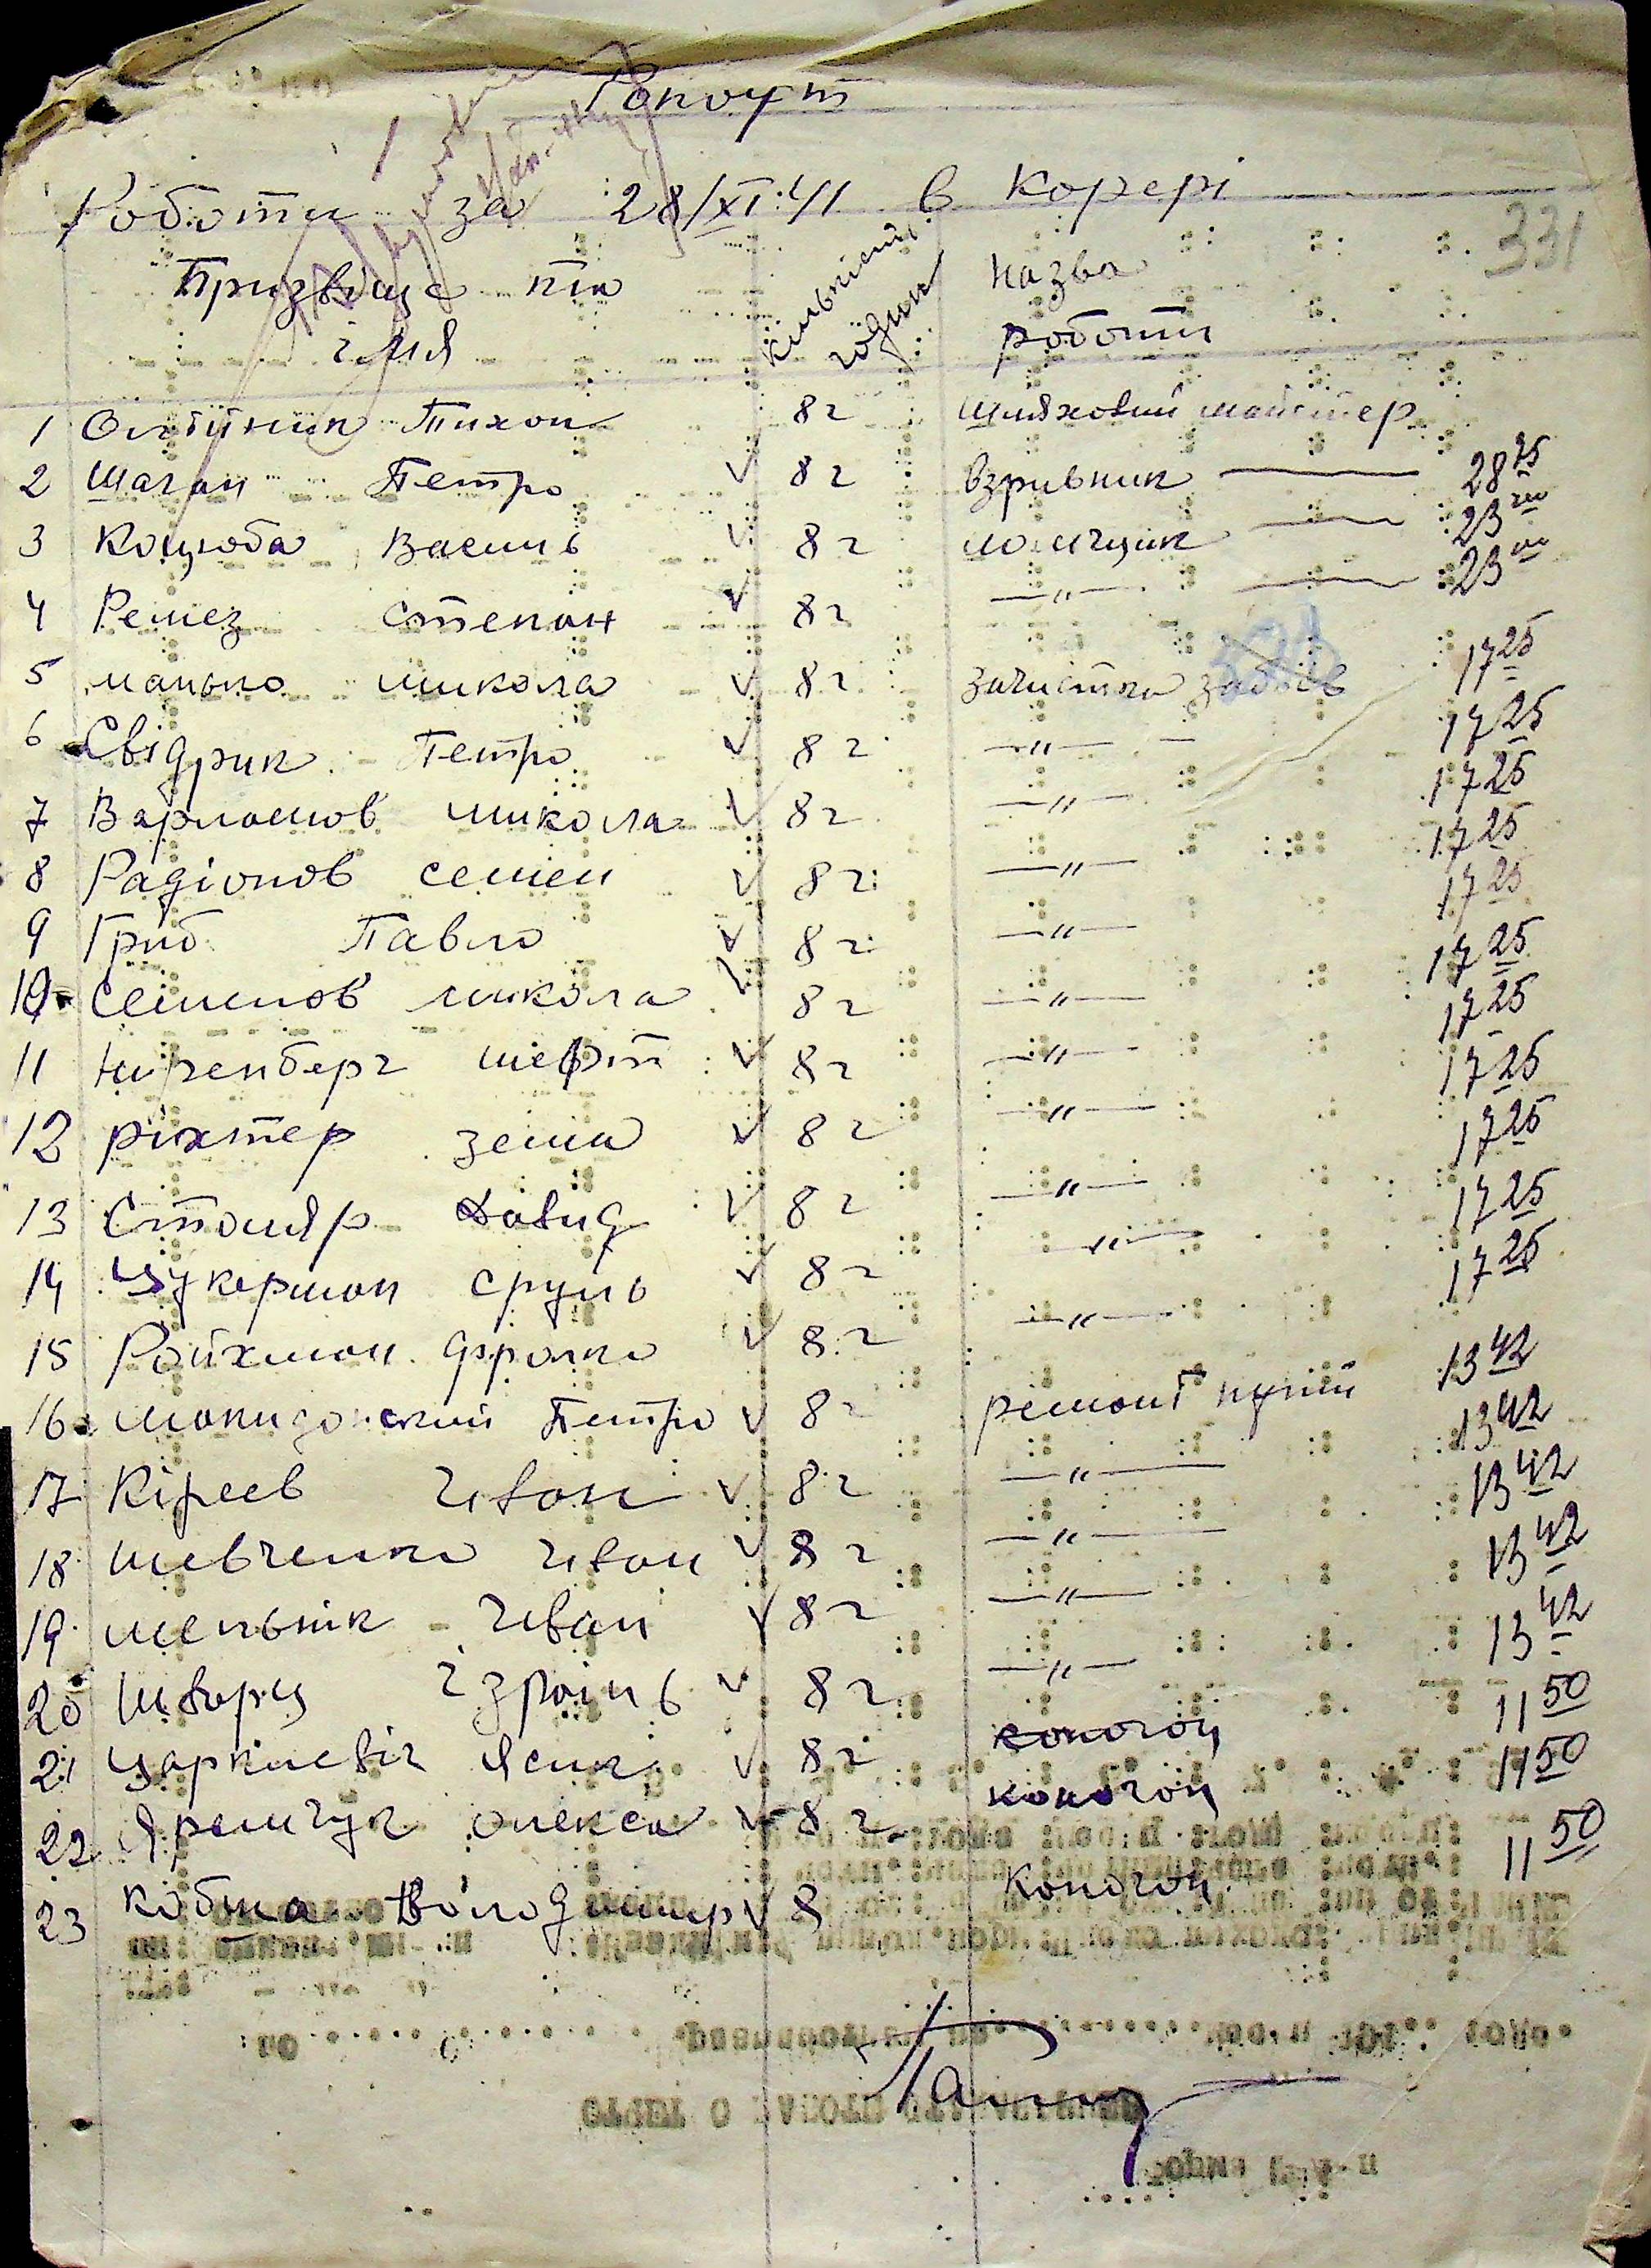 Рапорт
Роботи за 28/XI 41 в карері
331
Призвище та імя
кількість годин
Назва роботи
1 Олійник Тихон 8 г шляховий майстер
2 Шаган Петро 8 г взривник 28 75
3 Коцюба Василь 8 г ломщик 23 00
4 Ремез Степан 8 г —"— 23 00
5 манько микола 8 г зачистка забоїв 17 25
6 Свідрик Петро 8 г —"— 17 25
7 Варламов микола 8 г —"— 17 25
8 Радіонов семен 8 г —"— 17 25
9 Гриб Павло 8 г —"— 17 25
10 Семенов микола 8 г —"— 17 25
11 шефт 8 г —"— 17 25
12 ріхтер зема 8 г —"— 17 25
13 Столяр Давид 8 г —"— 17 25
14 Цукерман сруль 8 г —"— 17 25
15 Ройхман 8 г —"— 17 25
16 Петро 8 г ремонт путі 13 42
17 Кіреев Іван 8 г —"— 13 42
18 шевченко Іван 8 г —"— 13 42
19 мельнік Іван 8 г —"— 13 42
20 Шварц Ізраіль 8 г —"— 13 42
21 8 г коногон 11 50
22 Яремчук олекса 8 г коногон 11 50
23 кобта Володимир 8 Коногон 11 50